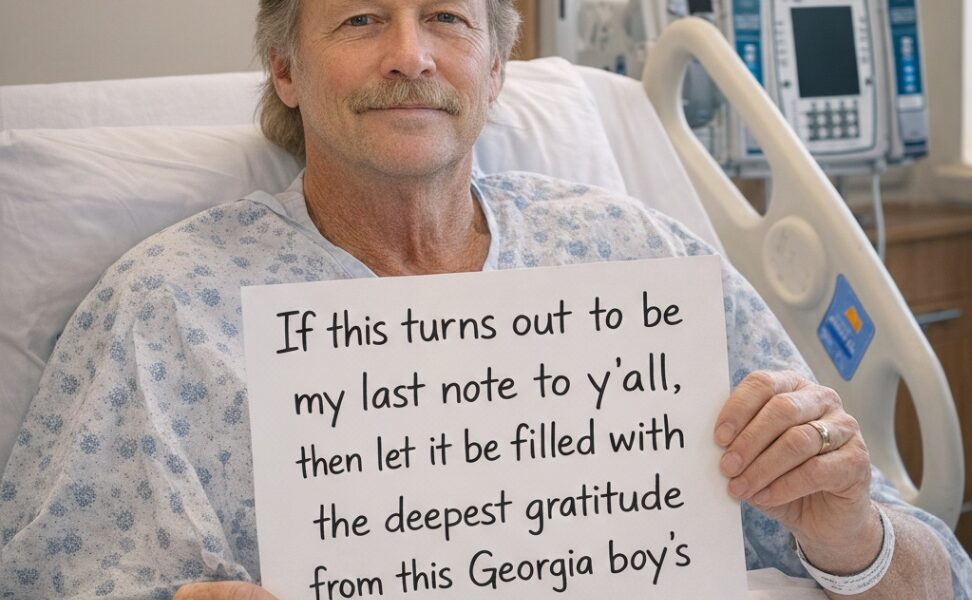 If this turns out to be
my last note to y'all,
then let it be filled with
the deepest gratitude
from this Georgia boy's